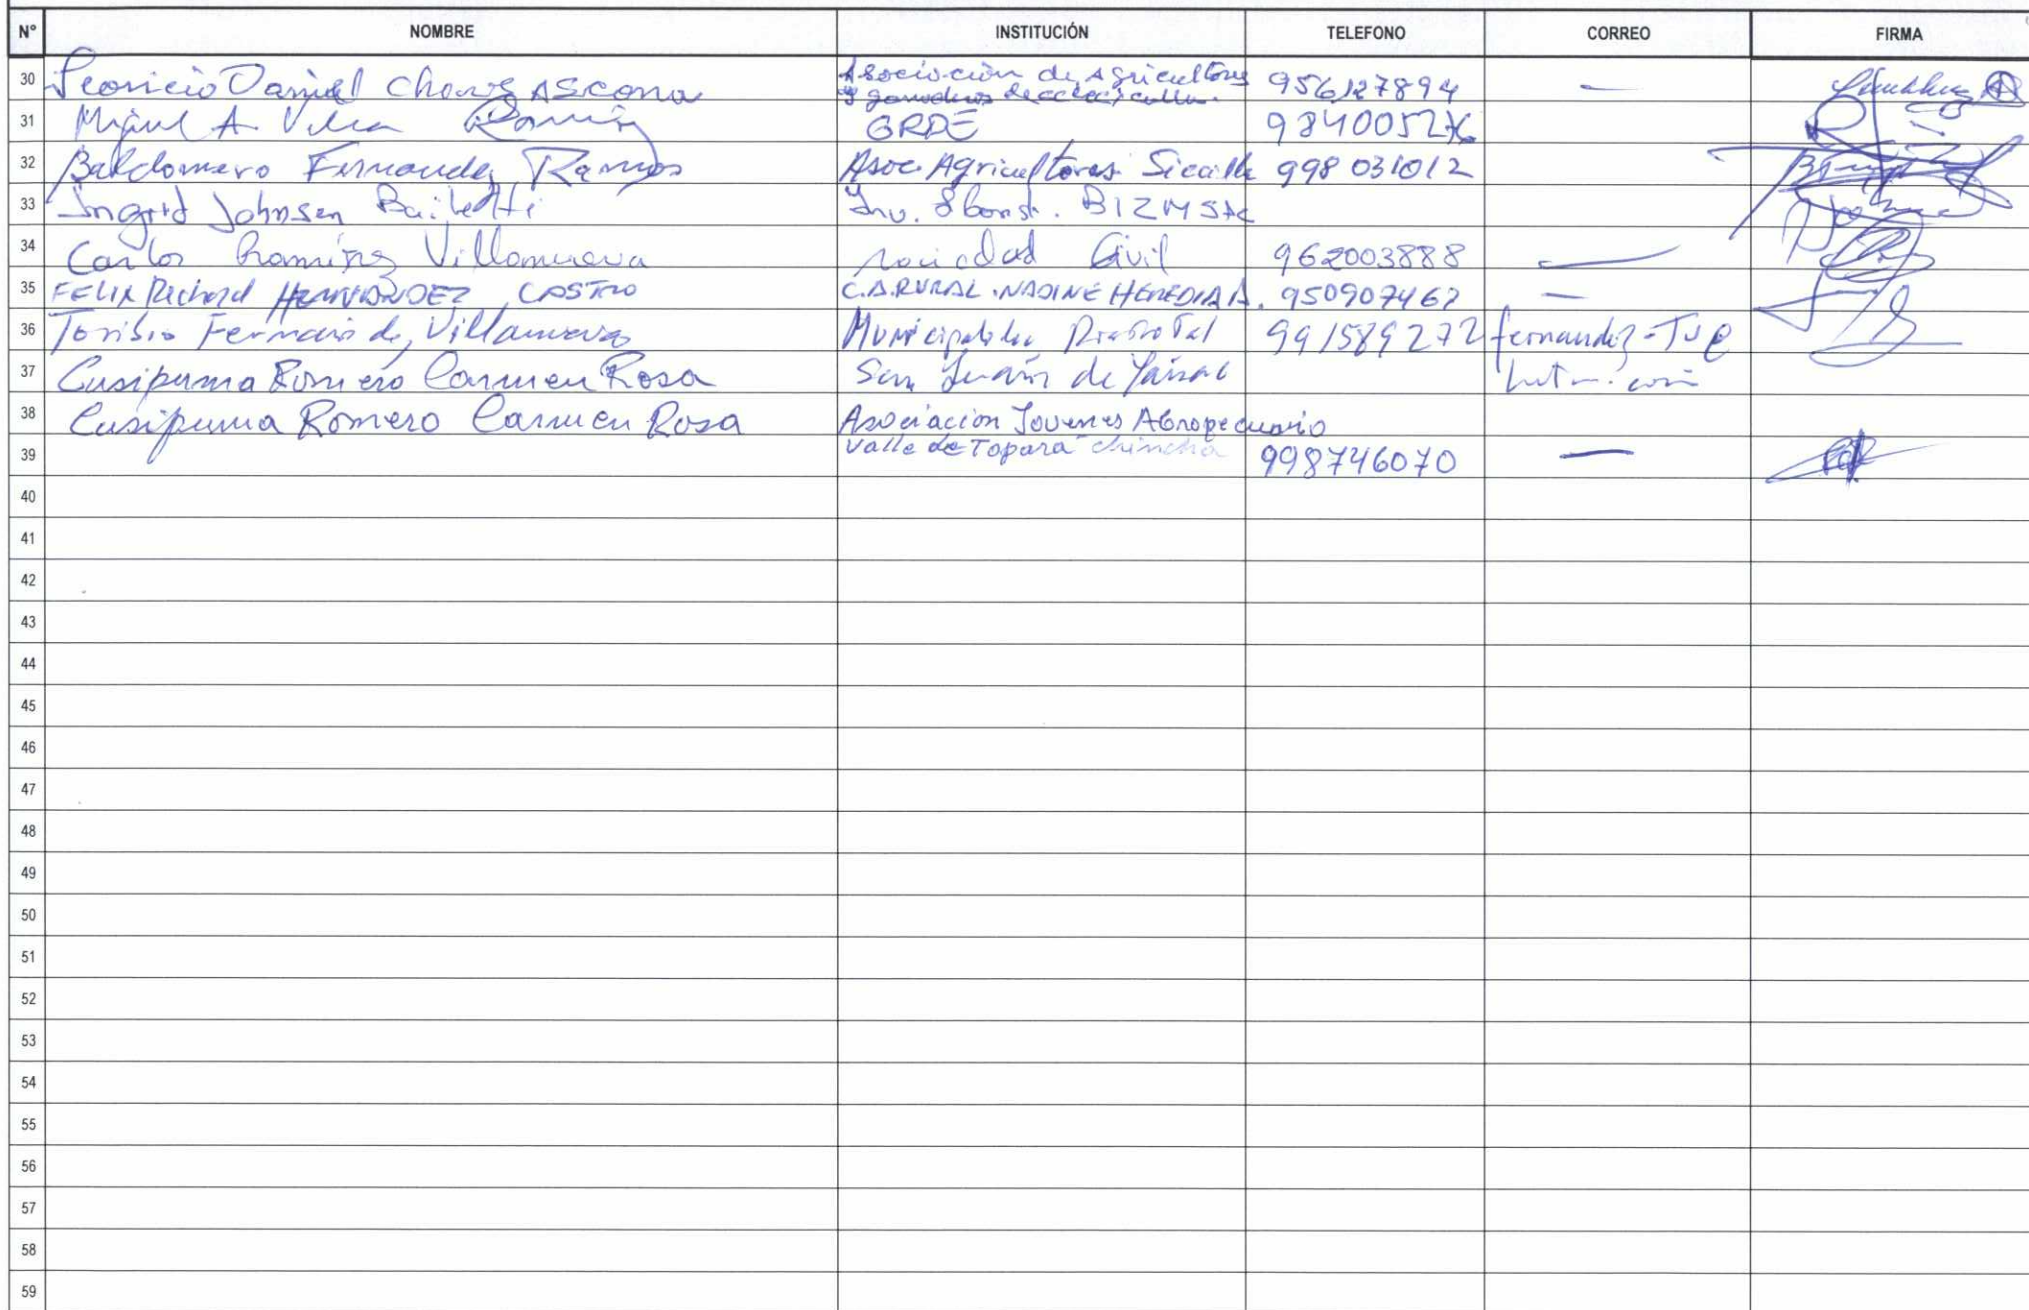 N° NOMBRE INSTITUCIÓN TELEFONO CORREO FIRMA
30 Daniel Chavez Ascona Asociación de Agricultores 956127894 —
y ganaderos de
31 Miguel A. Ramírez GRDE 984005276
32 Baldomero Fernandez Ramos Asoc. Agricultores Siccilla 998 031012
33 Ingrid Johnsen Bailetti Inv. BIZM SAC
34 Carlos Ramírez Villanueva sociedad Civil 962003888 —
35 FELIX Richard HERNANDEZ CASTRO C.A.RURAL. NADINE HEREDIA A. 950907467 —
36 Toribio Fernandez Villanueva Municipalidad Distrital 991589272 fernandez-TJ@
37 Cusipuma Romero Carmen Rosa San Juan de Yanac
38 Cusipuma Romero Carmen Rosa Asociacion Jovenes Agropecuario
39 Valle de Topara chincha 998746070 —
40
41
42
43
44
45
46
47
48
49
50
51
52
53
54
55
56
57
58
59